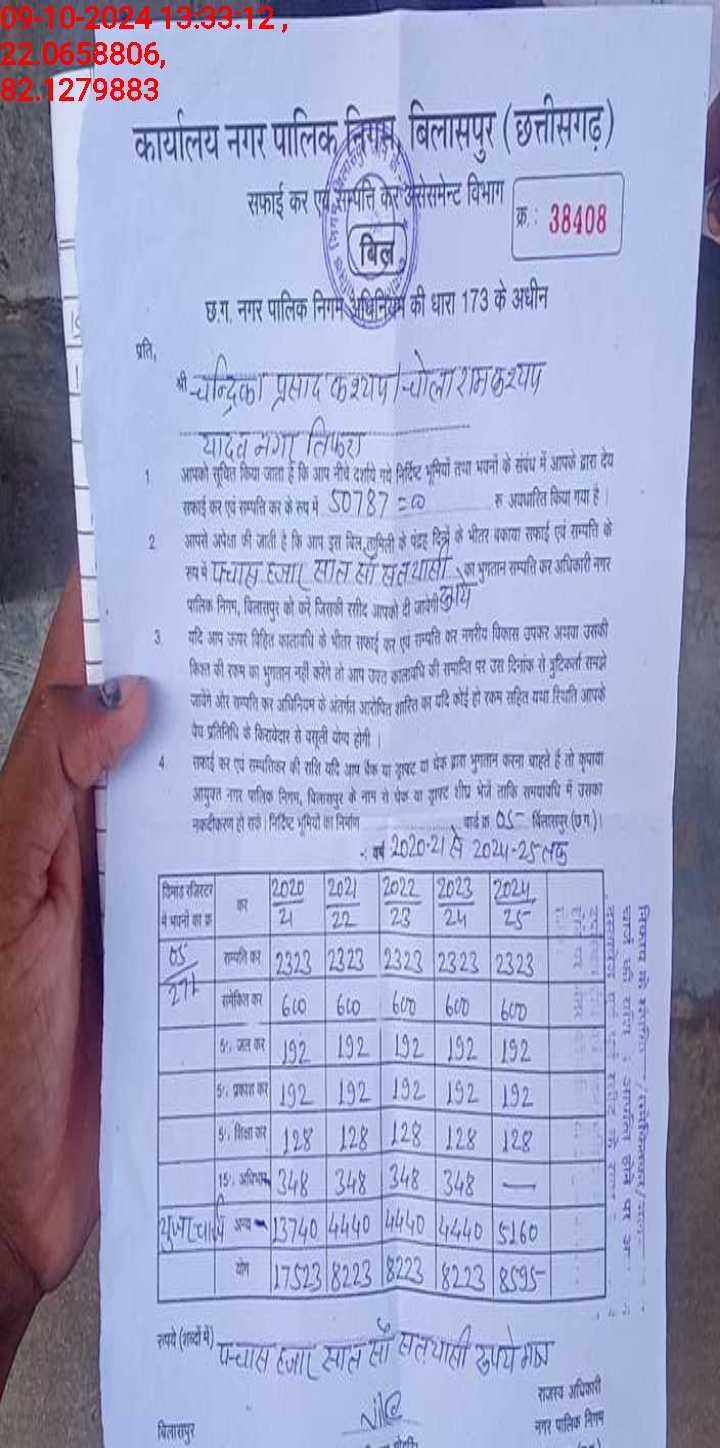 09-10-2024 13:33:12 ,
22.0658806,
82.1279883
कार्यालय नगर पालिक निगम, बिलासपुर (छत्तीसगढ़)
सफाई कर एवं सम्पत्ति कर असेसमेन्ट विभाग
क्र. : 38408
बिल
छ.ग. नगर पालिक निगम अधिनियम की धारा 173 के अधीन
प्रति,
श्री चन्द्रिका प्रसाद कश्यप / चोला राम कश्यप
यादव नगर तिफरा
1. आपको सूचित किया जाता है कि आप नीचे दर्शाये गये निर्दिष्ट भूमियों तथा भवनों के संबंध में आपके द्वारा देय
सफाई कर एवं सम्पत्ति कर के रूप में 50787=00 रू अवधारित किया गया है।
2 आपसे अपेक्षा की जाती है कि आप इस बिल तामिली के पंद्रह दिनों के भीतर बकाया सफाई एवं सम्पत्ति के
रूप में पच्चास हजार सात सौ सतयासी का भुगतान सम्पत्ति कर अधिकारी नगर
पालिक निगम, बिलासपुर को करें जिसकी रसीद आपको दी जावेगी
3. यदि आप ऊपर विहित कालावधि के भीतर सफाई कर एवं सम्पत्ति कर नगरीय विकास उपकर अथवा उसकी
किश्त की रकम का भुगतान नहीं करेंगे तो आप उक्त कालावधि की समाप्ति पर उस दिनांक से त्रुटिकर्ता समझे
जावेंगे और सम्पत्ति कर अधिनियम के अंतर्गत आरोपित शास्ति का यदि कोई हो रकम सहित यथा स्थिति आपके
वैध प्रतिनिधि के किरायेदार से वसूली योग्य होगी ।
4 सफाई कर एवं सम्पत्तिकर की राशि यदि आप बैंक या ड्राफ्ट या चेक द्वारा भुगतान करना चाहते हैं तो कृपया
आयुक्त नगर पालिक निगम, बिलासपुर के नाम से चेक या ड्राफ्ट शीघ्र भेजें ताकि समयावधि में उसका
नकदीकरण हो सके। निर्दिष्ट भूमियों का निर्माण वार्ड क्र 05 बिलासपुर (छ.ग.)।
वर्ष 2020-21 से 2024-25 तक
डिमांड रजिस्टर में भवनों का क्र कर 2020/21 2021/22 2022/23 2023/24 2024/25
05/271 सम्पत्ति कर 2323 2323 2323 2323 2323
समेकित कर 600 600 600 600 600
5% जल कर 192 192 192 192 192
5% प्रकाश कर 192 192 192 192 192
5% शिक्षा कर 128 128 128 128 128
15% अधिभार 348 348 348 348 —
अन्य 13740 4440 4440 4440 5160
योग 17523 8223 8223 8223 8595
रूपये (शब्दों में) पच्चास हजार सात सौ सतयासी रूपये मात्र
बिलासपुर
राजस्व अधिकारी
नगर पालिक निगम